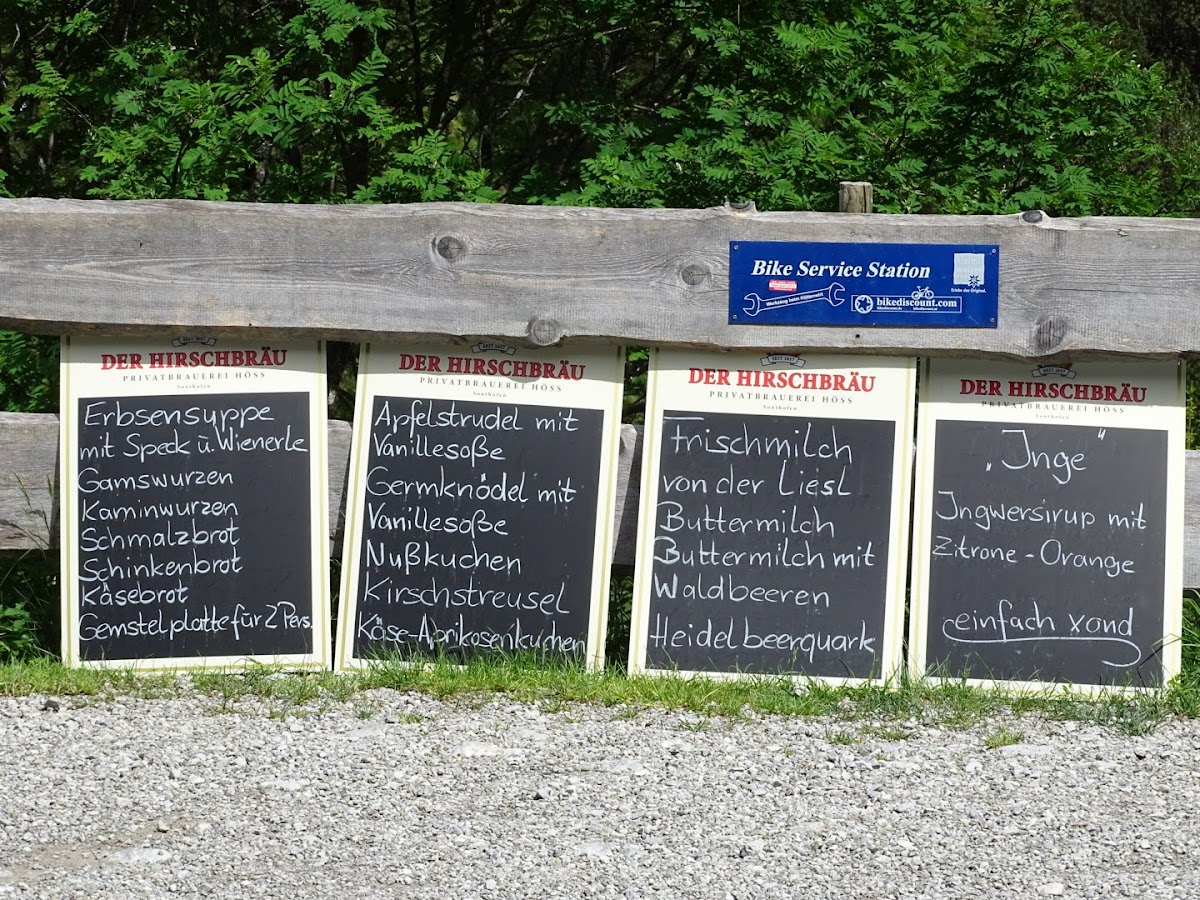 Bike Service Station
Werkzeug beim Hüttenwirt
bikediscount.com
Erlebe das Original.
SEIT 1657
DER HIRSCHBRÄU
PRIVATBRAUEREI HÖSS
Sonthofen
Erbsensuppe
mit Speck u. Wienerle
Gamswurzen
Kaminwurzen
Schmalzbrot
Schinkenbrot
Käsebrot
Gemstelplatte für 2 Pers.
SEIT 1657
DER HIRSCHBRÄU
PRIVATBRAUEREI HÖSS
Sonthofen
Apfelstrudel mit
Vanillesoße
Germknödel mit
Vanillesoße
Nußkuchen
Kirschstreusel
Käse-Aprikosenkuchen
SEIT 1657
DER HIRSCHBRÄU
PRIVATBRAUEREI HÖSS
Sonthofen
Frischmilch
von der Liesl
Buttermilch
Buttermilch mit
Waldbeeren
Heidelbeerquark
SEIT 1657
DER HIRSCHBRÄU
PRIVATBRAUEREI HÖSS
Sonthofen
„Inge"
Ingwersirup mit
Zitrone - Orange
einfach xond